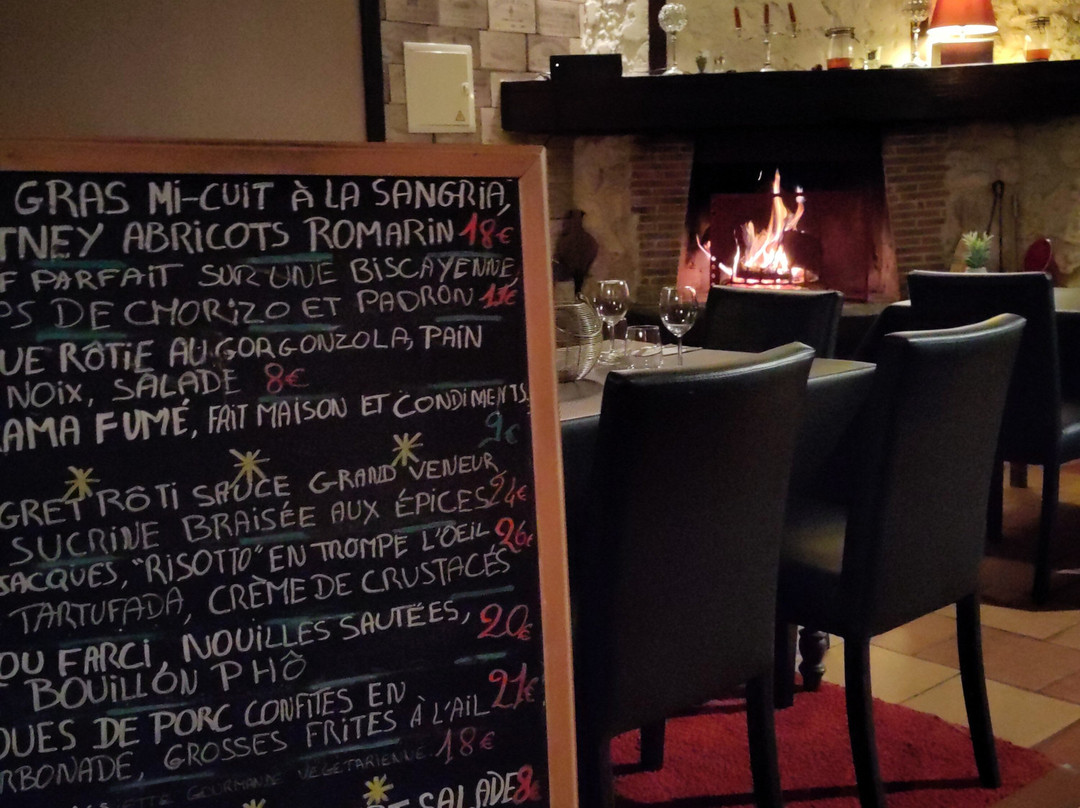 GRAS MI-CUIT À LA SANGRIA,
TNEY ABRICOTS ROMARIN 18€
F PARFAIT SUR UNE BISCAYENNE,
PS DE CHORIZO ET PADRÓN 11€
UE RÔTIE AU GORGONZOLA, PAIN
NOIX, SALADE 8€
AMA FUMÉ, FAIT MAISON ET CONDIMENTS.
9€
GRET RÔTI SAUCE GRAND VENEUR,
SUCRINE BRAISÉE AUX ÉPICES 24€
JACQUES, "RISOTTO" EN TROMPE L'OEIL, 26€
TARTUFADA, CRÈME DE CRUSTACÉS
OU FARCI, NOUILLES SAUTÉES, 20€
BOUILLON PHÔ
OUES DE PORC CONFITES EN 21€
RBONADE, GROSSES FRITES À L'AIL
ETTE GOURMANDE VEGETARIENNE. 18€
SALADE 8€